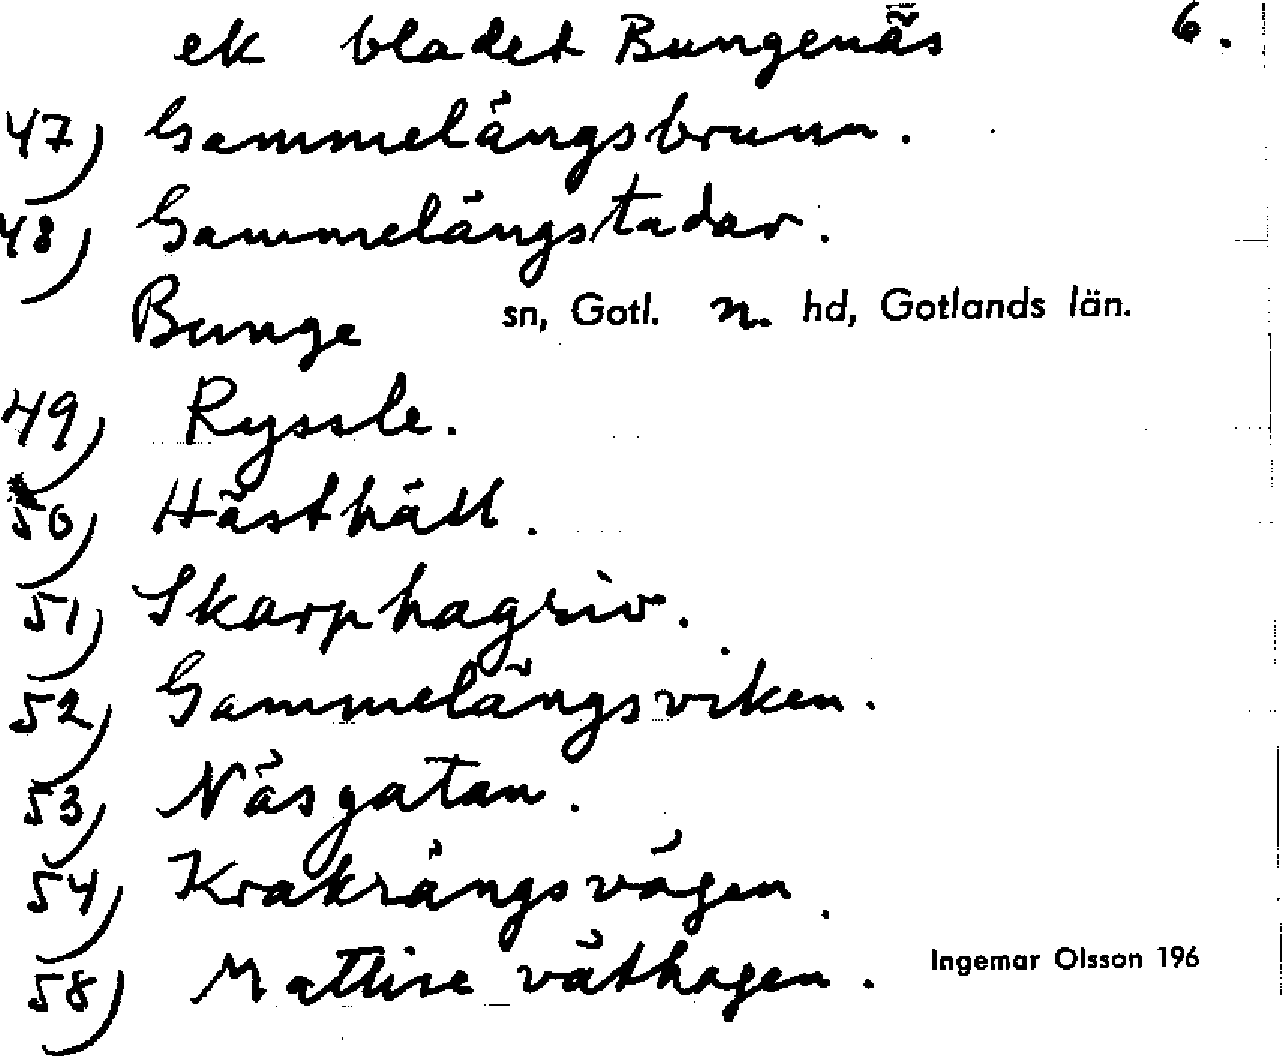 ek bladet Bungenäs 6.
47) Gammelängsbrunn.
48) Gammelängstadar.
Bunge sn, Gotl. n. hd, Gotlands län.
49) Ryssle.
50) Hästhäll.
51) Skarphagriv.
52) Gammelängsviken.
53) Näsgatan.
54) Krakrängsvägen.
58) Mattise väthagen.
Ingemar Olsson 196